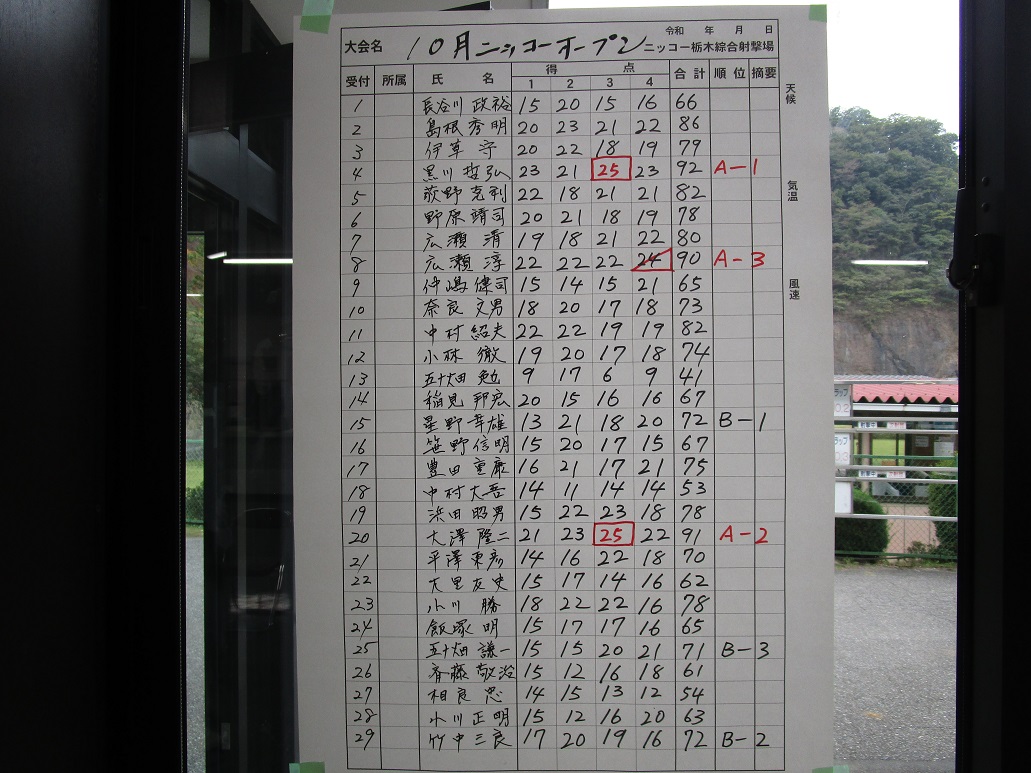 令和 年 月 日
大会名 10月ニッコーオープン ニッコー栃木綜合射撃場
受付 所属 氏名 得点 合計 順位 摘要
1 2 3 4
天候
気温
風速
1 長谷川 政裕 15 20 15 16 66
2 島根秀明 20 23 21 22 86
3 伊草 守 20 22 18 19 79
4 黒川哲弘 23 21 25 23 92 A-1
5 荻野克利 22 18 21 21 82
6 野原靖司 20 21 18 19 78
7 広瀬 清 19 18 21 22 80
8 広瀬 淳 22 22 22 24 90 A-3
9 仲嶋健司 15 14 15 21 65
10 奈良文男 18 20 17 18 73
11 中村紹夫 22 22 19 19 82
12 小林 徹 19 20 17 18 74
13 五十畑 勉 9 17 6 9 41
14 稲見邦宏 20 15 16 16 67
15 星野幸雄 13 21 18 20 72 B-1
16 笹野信明 15 20 17 15 67
17 豊田重康 16 21 17 21 75
18 中村大吾 14 11 14 14 53
19 浜田昭男 15 22 23 18 78
20 大澤隆二 21 23 25 22 91 A-2
21 平澤東彦 14 16 22 18 70
22 大里友史 15 17 14 16 62
23 小川 勝 18 22 22 16 78
24 飯塚 明 15 17 17 16 65
25 五十畑謙一 15 15 20 21 71 B-3
26 斉藤敬治 15 12 16 18 61
27 相良 忠 14 15 13 12 54
28 小川正明 15 12 16 20 63
29 竹中三良 17 20 19 16 72 B-2